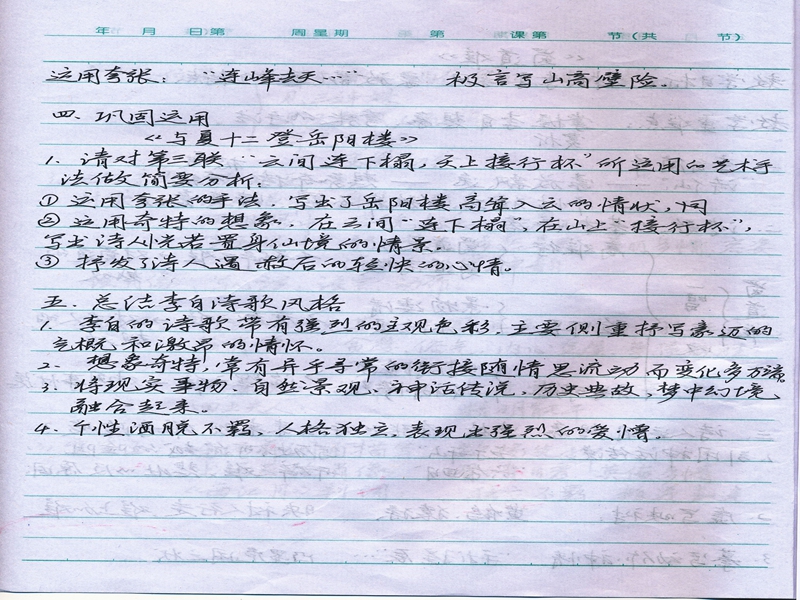 年 月 日第 周星期 第 课第 节(共 节)
运用夸张："连峰去天……" 极言写山高壁险。
四. 巩固运用
《与夏十二登岳阳楼》
1. 请对第三联"云间连下榻,天上接行杯"所运用的艺术手
法做简要分析:
① 运用夸张的手法,写出了岳阳楼高耸入云的情状,同
② 运用奇特的想象,在云间"连下榻",在山上"接行杯",
写出诗人恍若置身仙境的情景.
③ 抒发了诗人遇赦后的轻快的心情。
五. 总结李白诗歌风格
1. 李白的诗歌带有强烈的主观色彩,主要侧重抒写豪迈的
气概和激昂的情怀。
2. 想象奇特,常有异乎寻常的衔接随情思流动而变化多万端。
3. 将现实事物、自然景观、神话传说,历史典故,梦中幻境,
融合起来。
4. 个性洒脱不羁,人格独立,表现出强烈的爱憎。